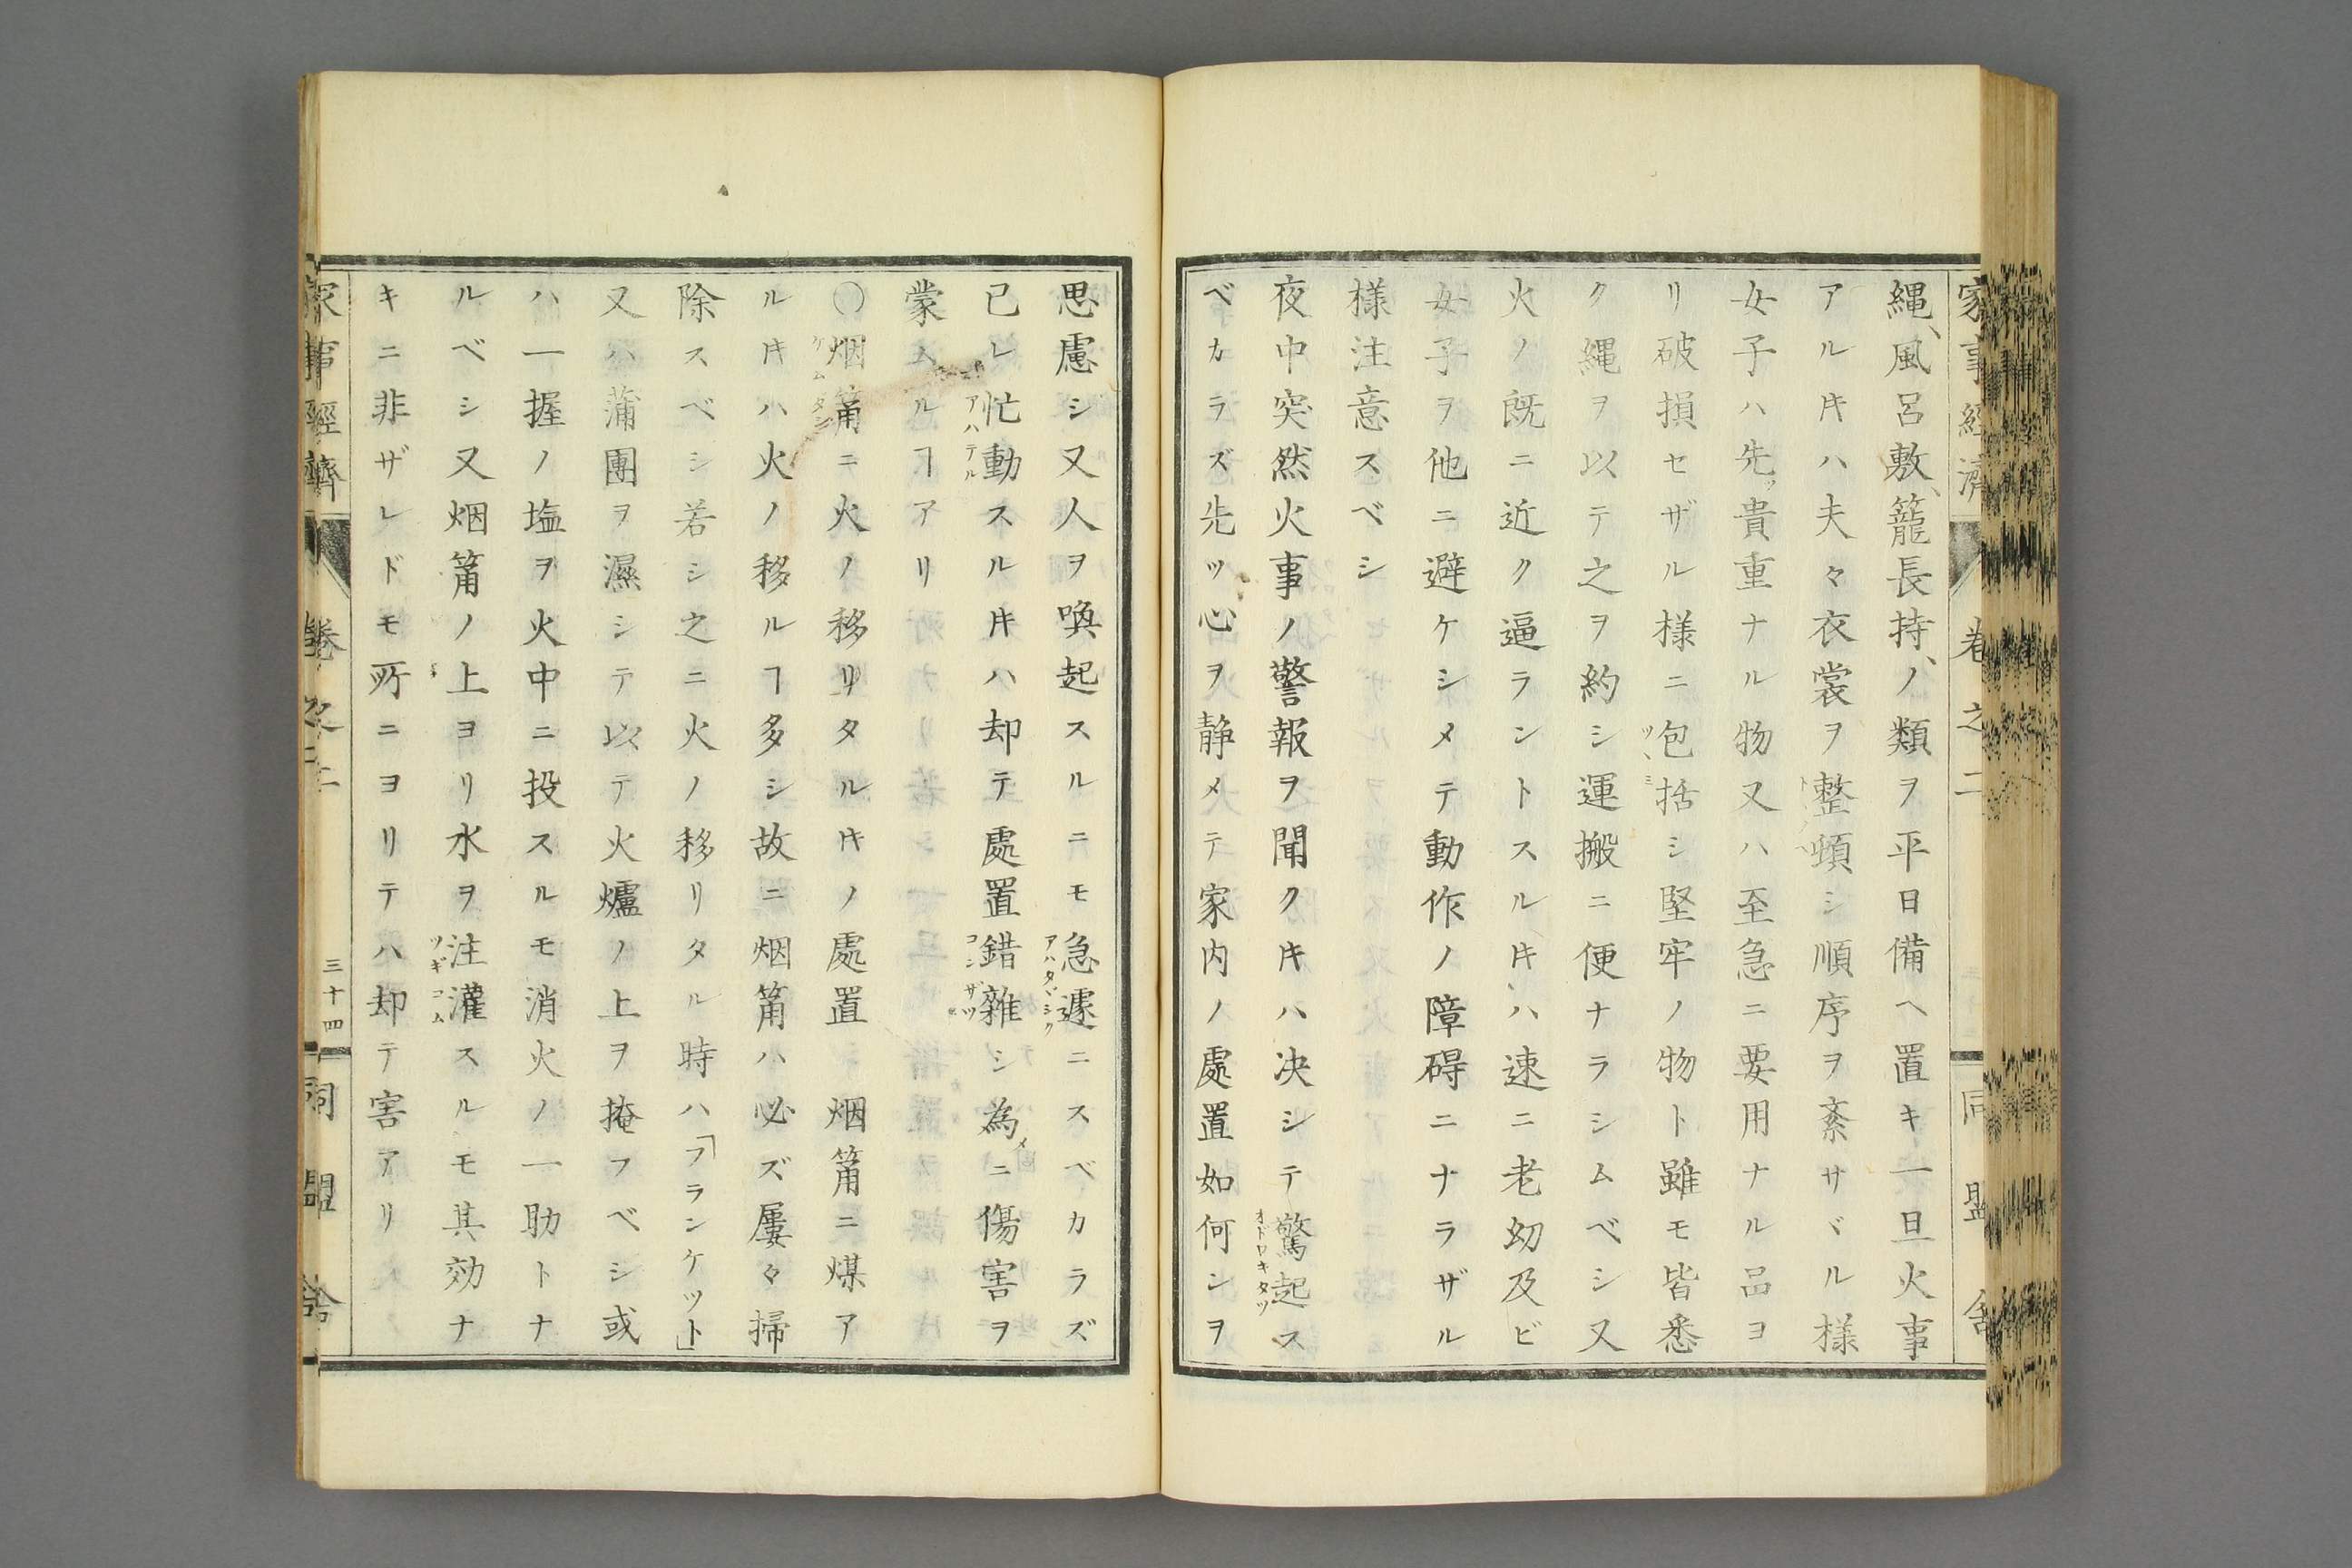 家事經濟 卷之二 同盟舎
縄、風呂敷、籠長持、ノ類ヲ平日備ヘ置キ一旦火事
アル𪜈ハ夫々衣裳ヲ整頓シ順序ヲ紊サヾル様
女子ハ先ッ貴重ナル物又ハ至急ニ要用ナル品ヨ
リ破損セザル様ニ包括シ堅牢ノ物ト雖モ皆悉
ツヽミ
ク縄ヲ以テ之ヲ約シ運搬ニ便ナラシムベシ又
火ノ既ニ近ク逼ラントスル𪜈ハ速ニ老幼及ビ
女子ヲ他ニ避ケシメテ動作ノ障碍ニナラザル
様注意スベシ
夜中突然火事ノ警報ヲ聞ク𪜈ハ决シテ驚起ス
オドロキタツ
ベカラズ先ッ心ヲ静メテ家内ノ處置如何シヲ
思慮シ又人ヲ喚起スルニモ急遽ニスベカラズ
アハタヾシク
已レ忙動スル𪜈ハ却テ處置錯雜シ為メニ傷害ヲ
アハテル
コンザツ
蒙ムルヿアリ
〇烟筩ニ火ノ移リタル𪜈ノ處置 烟筩ニ煤ア
ケムダシ
ル𪜈ハ火ノ移ルヿ多シ故ニ烟筩ハ必ズ屢々掃
除スベシ若シ之ニ火ノ移リタル時ハ「フランケット」
又ハ蒲團ヲ濕シテ以テ火爐ノ上ヲ掩フベシ或
ハ一握ノ塩ヲ火中ニ投スルモ消火ノ一助トナ
ルベシ又烟筩ノ上ヨリ水ヲ注灌スルモ其効ナ
ツギコム
キニ非ザレドモ所ニヨリテハ却テ害アリ
家事經濟 卷之二 三十四 同盟舎